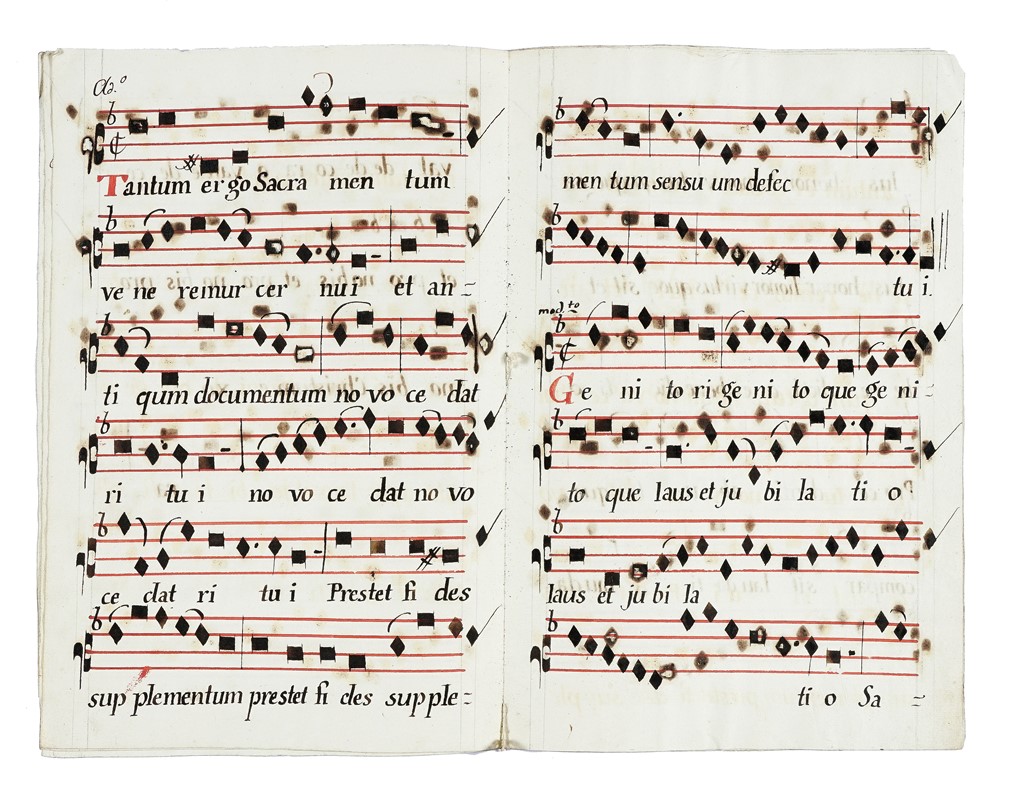 Ad.º
Tantum ergo Sacra men tum
ve ne remur cer nu i et an =
ti qum documentum no vo ce dat
ri tu i no vo ce dat no vo
ce dat ri tu i Prestet fi des
sup plementum prestet fi des supple =
men tum sensu um defec
tu i.
mod.to
Ge ni to ri ge ni to que ge ni =
to que laus et ju bi la ti o
laus et ju bi la
ti o Sa =